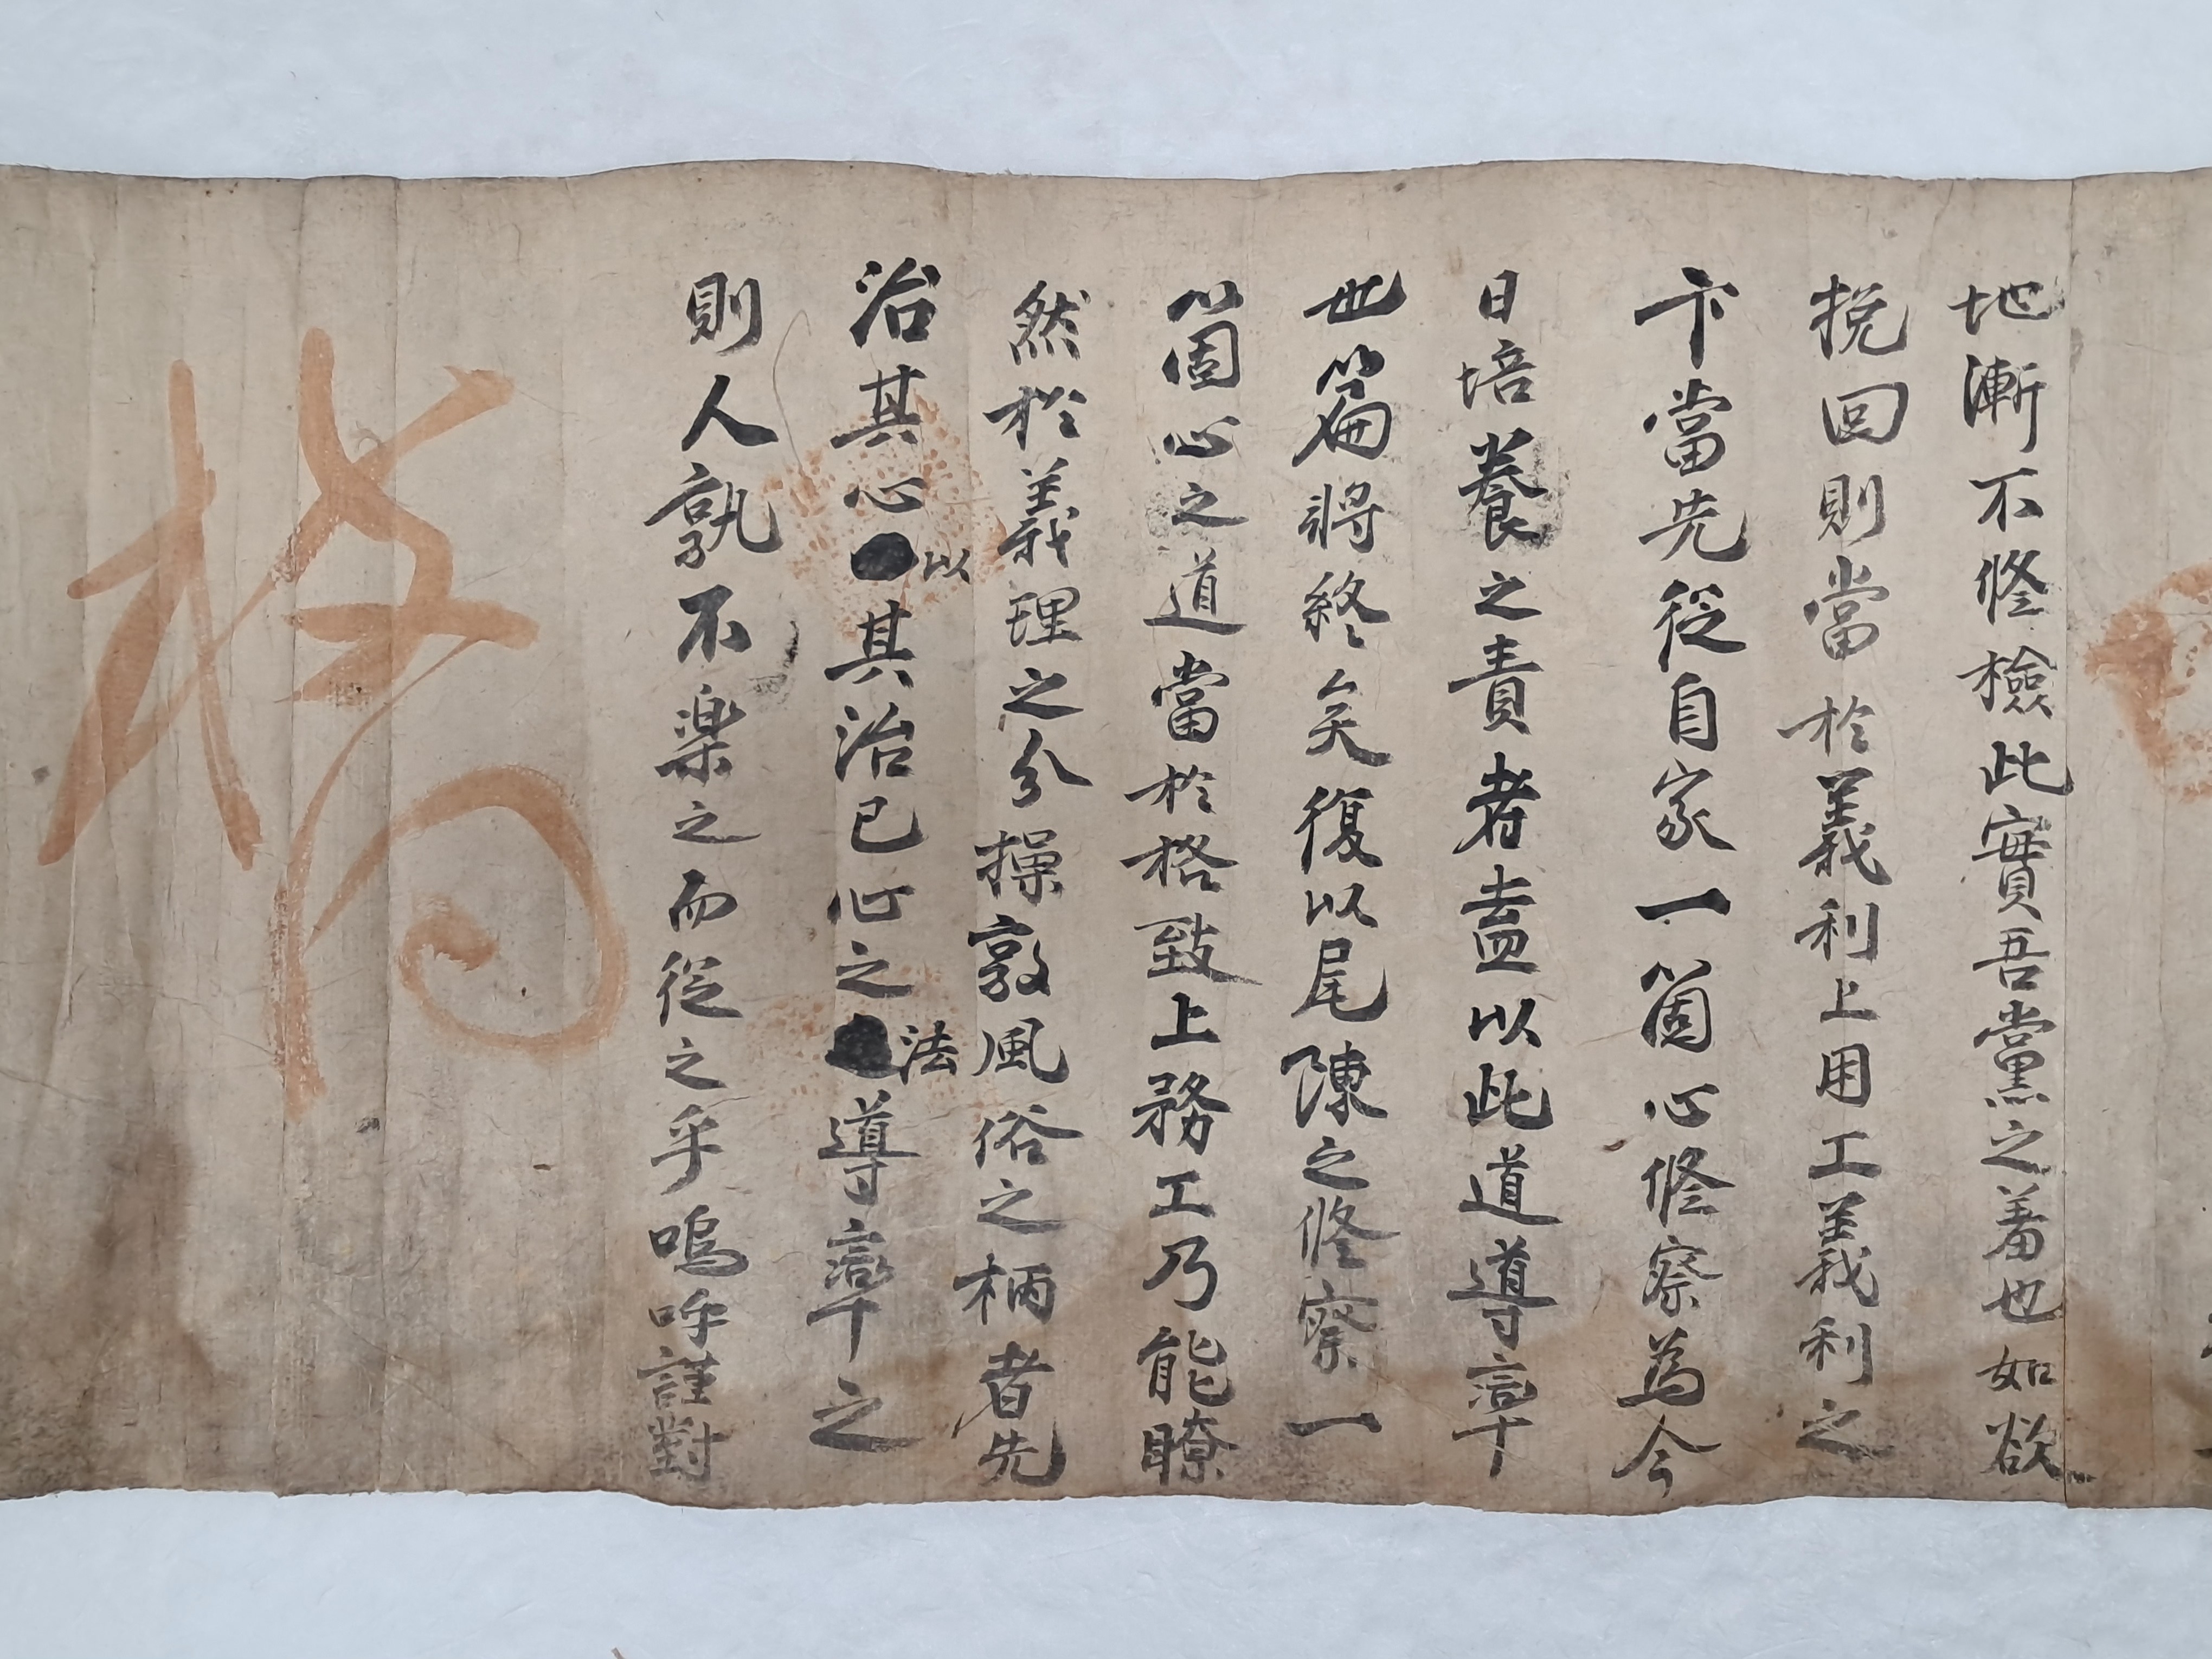 地漸不修檢此實吾黨之羞也如欲
挽回則當於義利上用工義利之
卞當先從自家一箇心修察爲今
日培養之責者盍以此道導率
世篇將終矣復以尾陳之修察一
箇心之道當於格致上務工乃能瞭
然於義理之分操敦風俗之柄者先
治其心以其治已心之法導率之
則人孰不楽之而從之乎嗚呼謹對